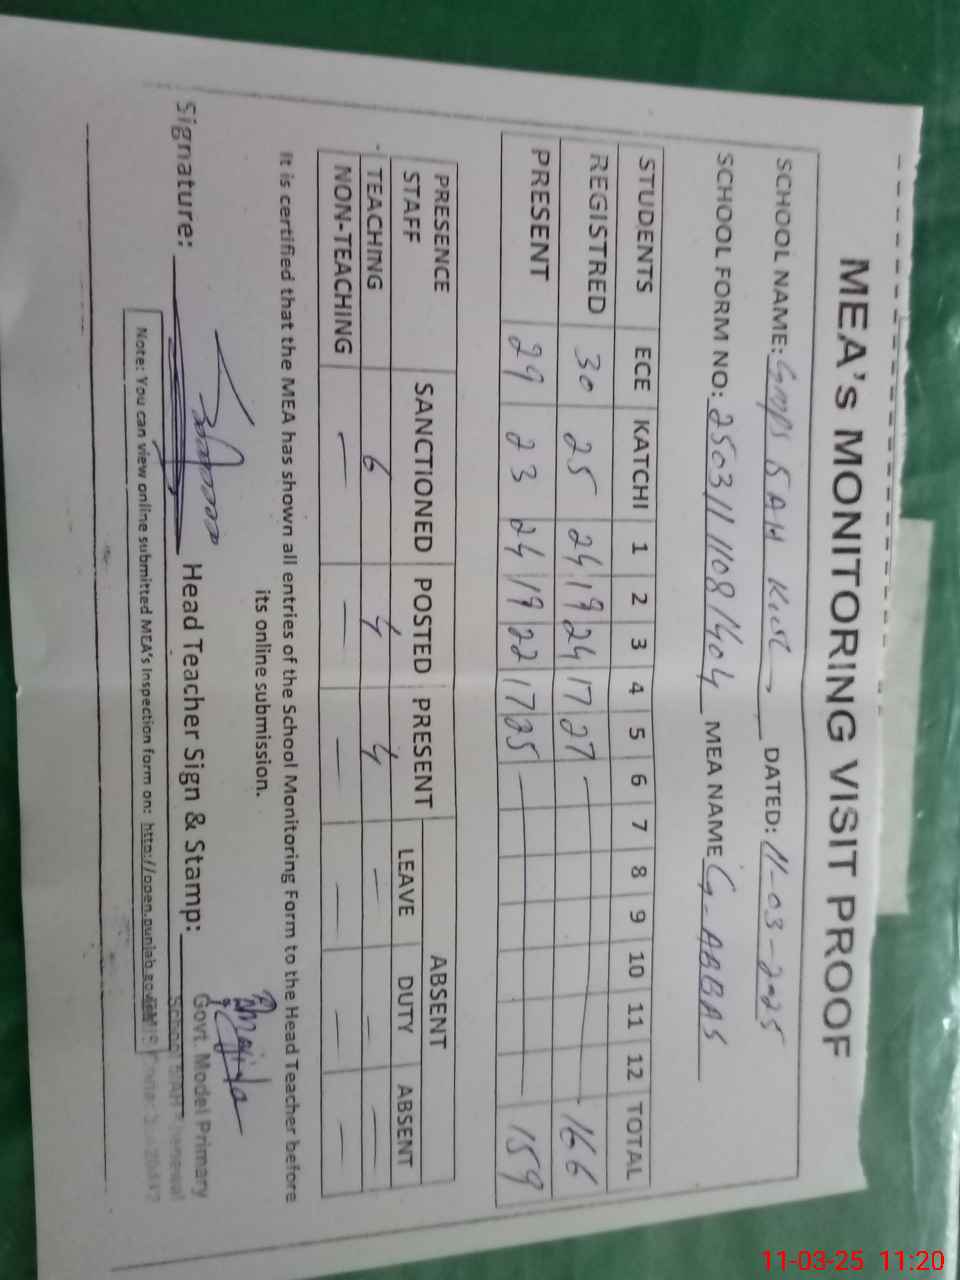 MEA's MONITORING VISIT PROOF
SCHOOL NAME: GMPS 5 AH DATED: 11-03-2025
SCHOOL FORM NO: 25031111081404 MEA NAME G-ABBAS
STUDENTS ECE KATCHI 1 2 3 4 5 6 7 8 9 10 11 12 TOTAL
REGISTRED 30 25 24 19 24 17 27 — 166
PRESENT 29 23 24 19 22 17 25 — 159
PRESENCE SANCTIONED POSTED PRESENT ABSENT
STAFF LEAVE DUTY ABSENT
TEACHING 6 4 4 — — —
NON-TEACHING — — — — — —
It is certified that the MEA has shown all entries of the School Monitoring Form to the Head Teacher before
its online submission.
Signature: Head Teacher Sign & Stamp:
Govt. Model Primary
School
Note: You can view online submitted MEA's Inspection form on: http://open.punjab.gov.pk
11-03-25 11:20